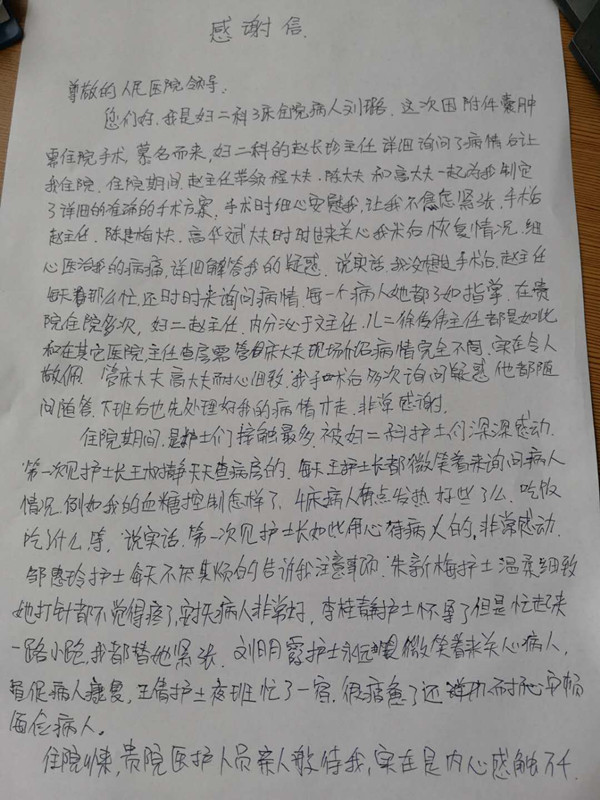 感谢信
尊敬的人民医院领导：
您们好，我是妇二科3床住院病人刘璐，这次因附件囊肿
需住院手术，慕名而来，妇二科的赵长珍主任详细询问了病情后让
我住院，住院期间赵主任带领程大夫、陈大夫和高大夫一起为我制定
了详细的准确的手术方案，手术时细心安慰我，让我不焦虑紧张，手术后
赵主任、陈建梅大夫、高华斌大夫时时过来关心我术后恢复情况，细
心医治我的病痛，详细解答我的疑惑，说实话，我没想过手术后，赵主任
每天那么忙，还时时来询问病情，每一个病人她都了如指掌，在贵
院住院多次，妇二赵主任，内分泌于文主任，儿二徐传伟主任都是如此
和在其它医院主任查房需管床大夫现场介绍病情完全不同，实在令人
敬佩，管床大夫高大夫耐心细致，我手术后多次询问疑惑他都随
问随答，下班后也先处理好我的病情才走，非常感谢。
住院期间，是护士们接触最多，被妇二科护士们深深感动，
第一次见护士长天天查病房的，每天王护士长都微笑着来询问病人
情况，例如我的血糖控制怎样了，4床病人有点发热好些了么，吃饭
吃什么等，说实话，第一次见护士长如此用心待病人的，非常感动，
邹惠玲护士每天不厌其烦的告诉我注意事项，朱新梅护士温柔细致
她打针都不觉得疼了，对病人非常好，李桂静护士怀孕了但是忙起来
一路小跑，我都替她紧张，刘明霞护士永远微笑着来关心病人，
督促病人康复，王倩护士夜班忙了一宿，很疲惫了还耐心
病人。
住院以来，贵院医护人员亲人般待我，实在是内心感触万千，